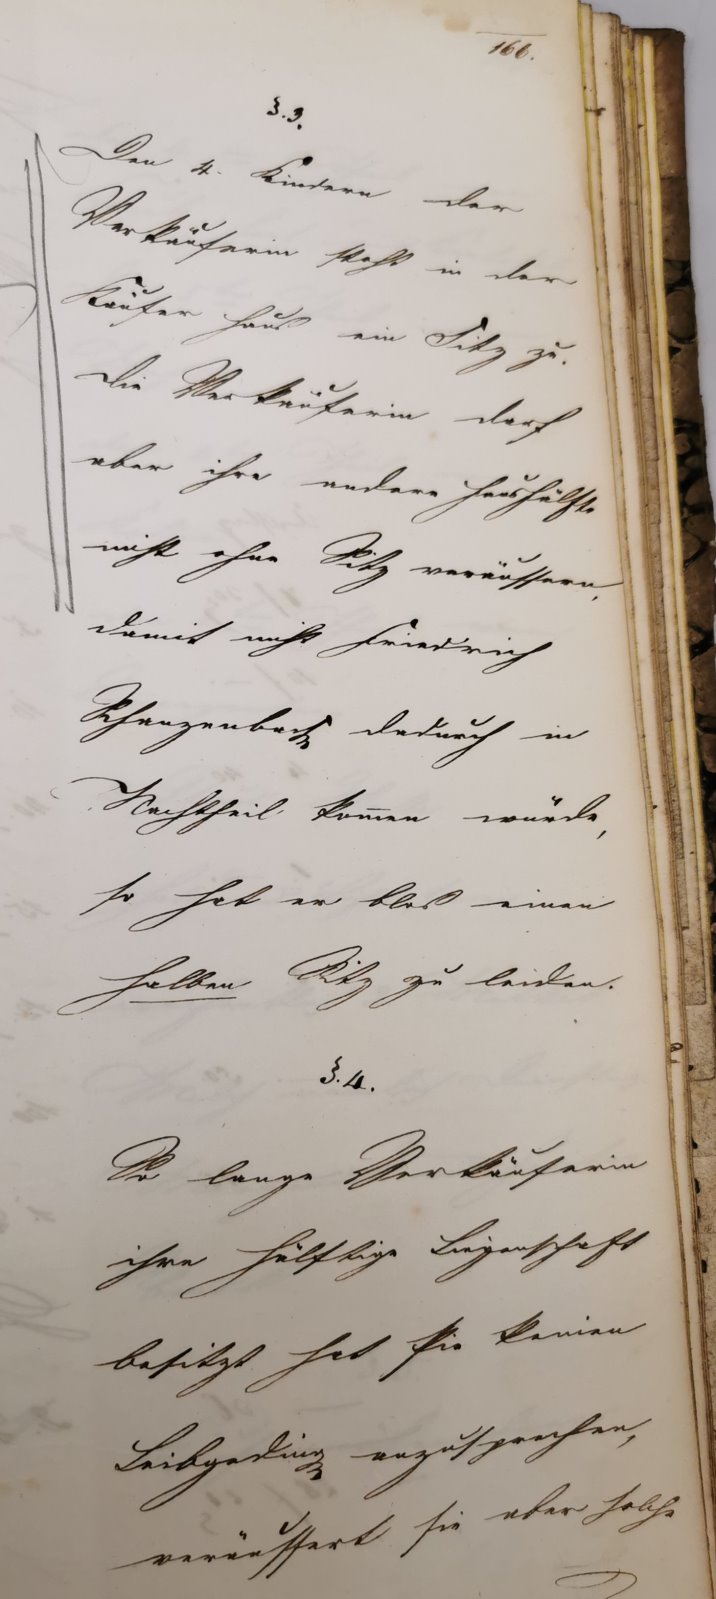 166.
§. 3.
Den 4. Kindern der
Verkäuferin steht in der
Käufer Haus ein Sitz zu.
Die Verkäuferin darf
aber ihre andere Haushälfte
nicht ohne Sitz veräussern,
damit nicht Friedrich
Schanzenbach dadurch in
Nachtheil kom̄en würde,
so hat er blos einen
halben Sitz zu leiden.
§. 4.
So lange Verkäuferin
ihre hälftige Liegenschaft
besitzt hat sie keinen
Leibgeding anzusprechen,
veräussert sie aber solche